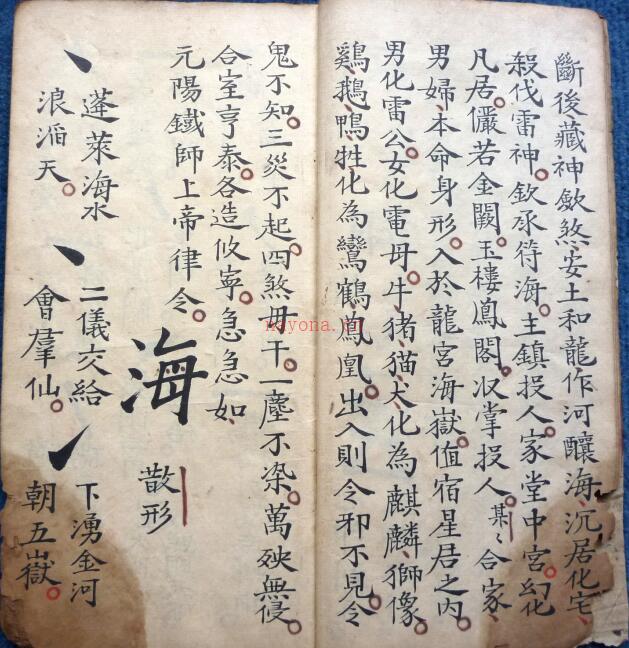 斷後藏神斂煞安土和龍作河釀海沉居化宅
殺伐雷神欽承符海主鎮投人家堂中宮幻化
凡居儼若金闕玉樓鳳閣収掌投人某〻合家
男婦本命身形入於龍宮海嶽值宿星居之内
男化雷公女化電母牛猪猫犬化為麒麟獅像
鷄鵝鴨牲化為鸞鶴鳳凰出入則令邪不見令
鬼不知三災不起四煞毋干一塵不染萬殃無侵
合室亨泰各造攸寧急急如
元陽鐵師上帝律令
海
散形
蓬萊海水
浪滔天
二儀交給
會羣仙
下湧金河
朝五嶽
nayona.cn